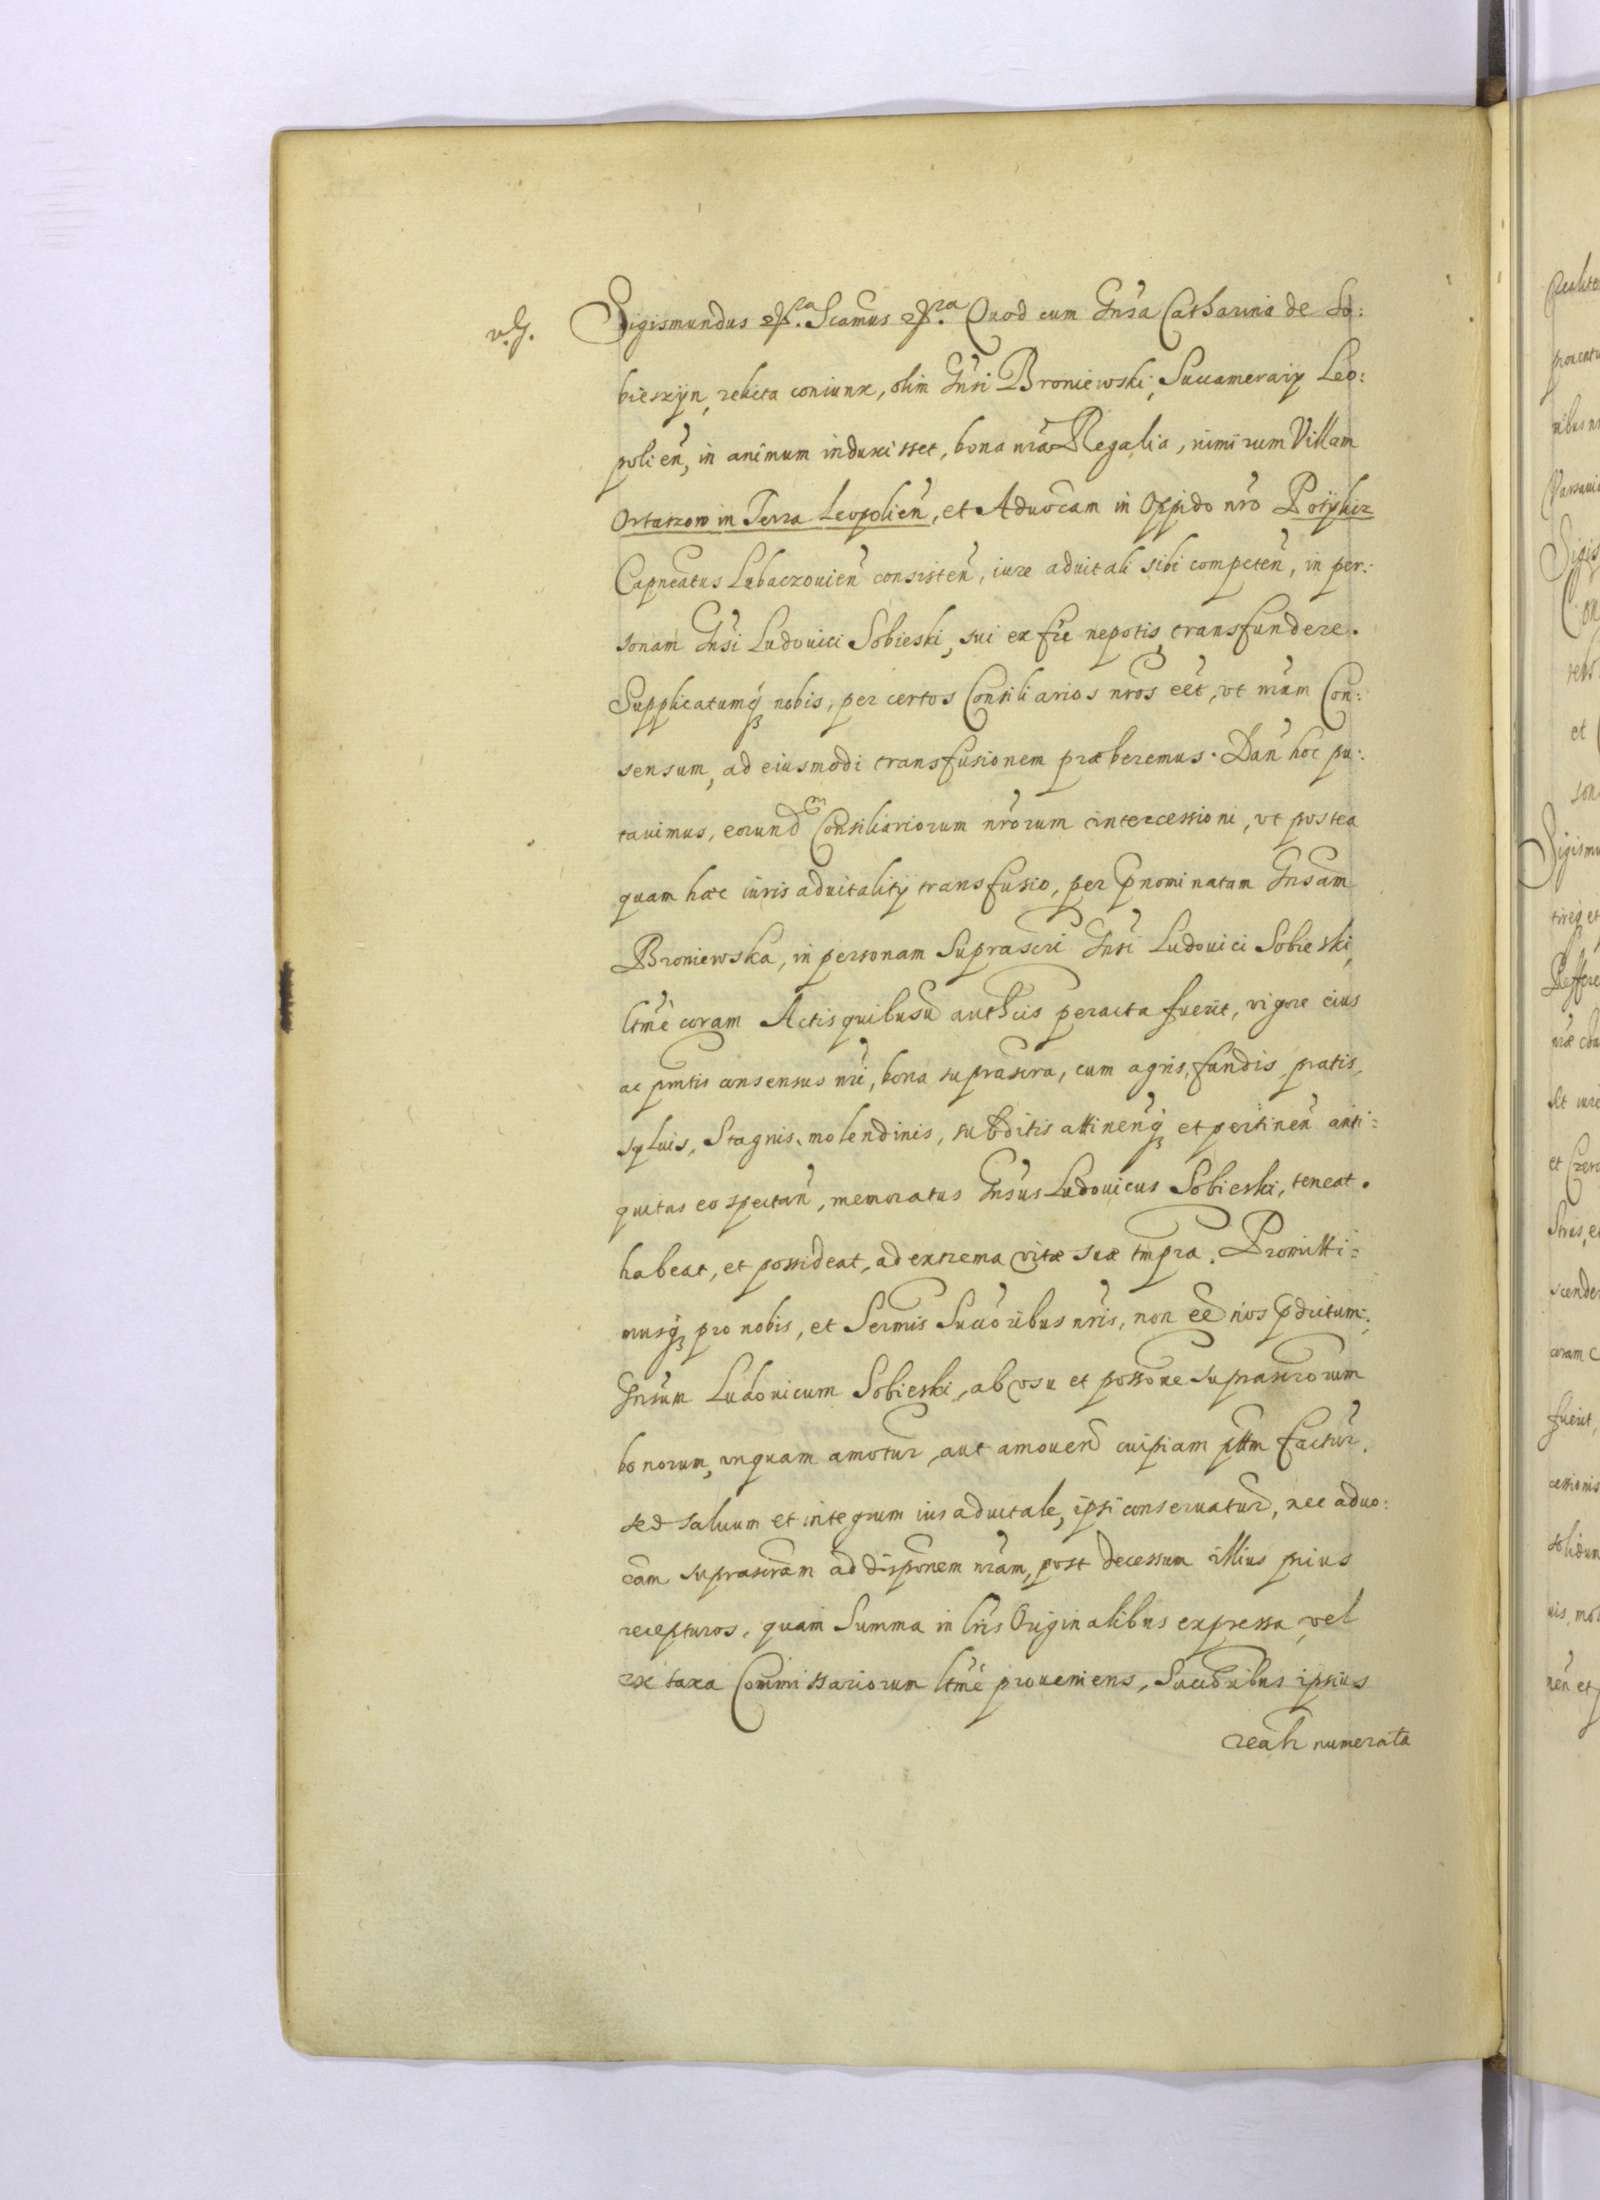 v. G.
Sigismundus etc.ra Scamus etc.ra Quod cum Gnsa Catharina de So:
bieszyn, relicta coniunx, olim Gnsi Broniewski, Succamerarij Leo:
polien, in animum induxisset, bona nra Regalia, nimirum Villam
Ostarzow in Terra Leopolien, et Aduocam in Oppido nro Potylicz
Capneatus Lubaczouien consisten, iure aduitali sibi competen, in per:
sonam Gnsi Ludouici Sobieski, sui ex fre nepotis, transfundere.
Supplicatumq nobis, per certos Consiliarios nros eet, vt nram Con:
sensum, ad eiusmodi transfusionem præberemus. Dan hoc pu:
tauimus, eorundem Consiliariorum nrorum intercessioni, vt postea
quam hæc iuris aduitalitij transfusio, per pnominatam Gnsam
Broniewska, in personam suprascri Gnsi Ludouici Sobieski,
ltme coram Actis quibusu authcis peracta fuerit, vigore eius
ac pntis consensus nri, bona suprascra, cum agris, fundis, pratis,
syluis, Stagnis, molendinis, subditis attinenq et pertinen anti:
quitus eo spectan, memoratus Gnsus Ludouicus Sobieski, teneat.
habeat, et possideat, ad extrema vitæ suæ tmpra. Promitti:
musq pro nobis, et Sermis Succoribus nris, non ee nos pdictum:
Gnsum Ludouicum Sobieski, ab vsu et possone suprascrorum
bonorum, vnquam amotur, aut amouend cuipiam pttm factur.
sed saluum et integrum ius aduitale, ipsi conseruatur, nec aduo:
cam suprascram ad disponem nram, post decessum illius prius
recepturos, quam Summa in lris Originalibus expressa, vel
ex taxa Commissariorum ltme proueniens, Succoribus ipsius
realr numerata